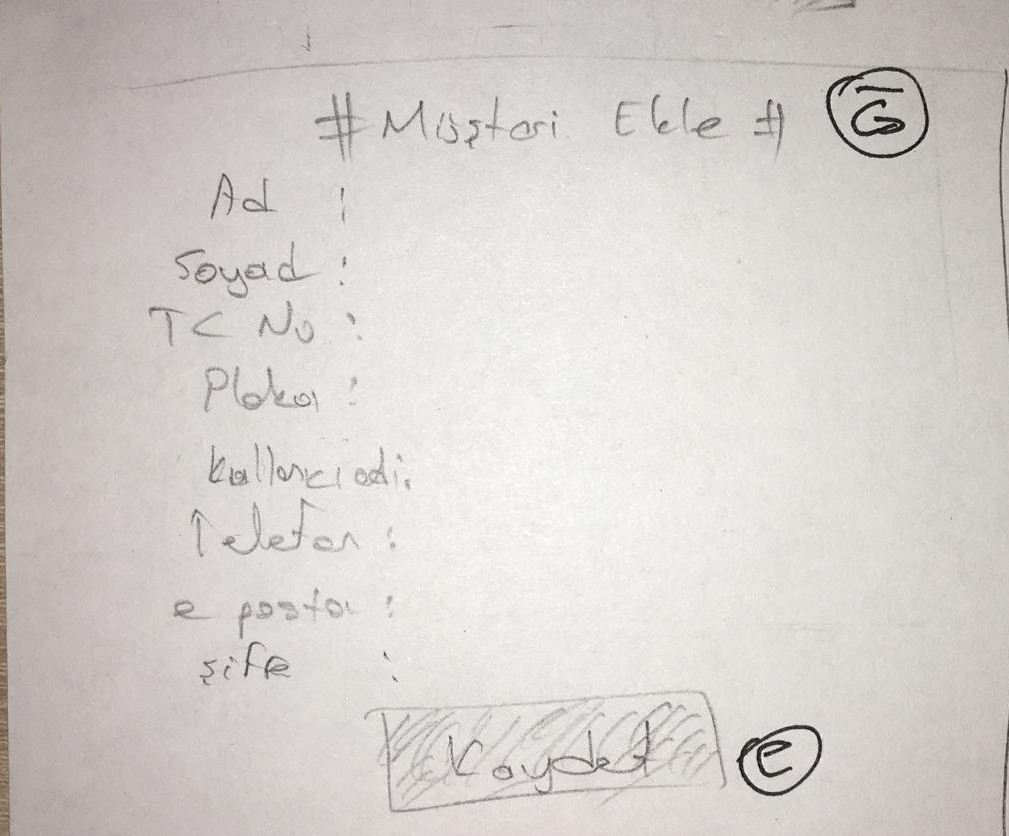 # Müşteri Ekle # G
Ad :
Soyad :
TC No :
Plaka :
kullanıcı adı:
Telefon :
e posta :
şifre :
Kaydet C